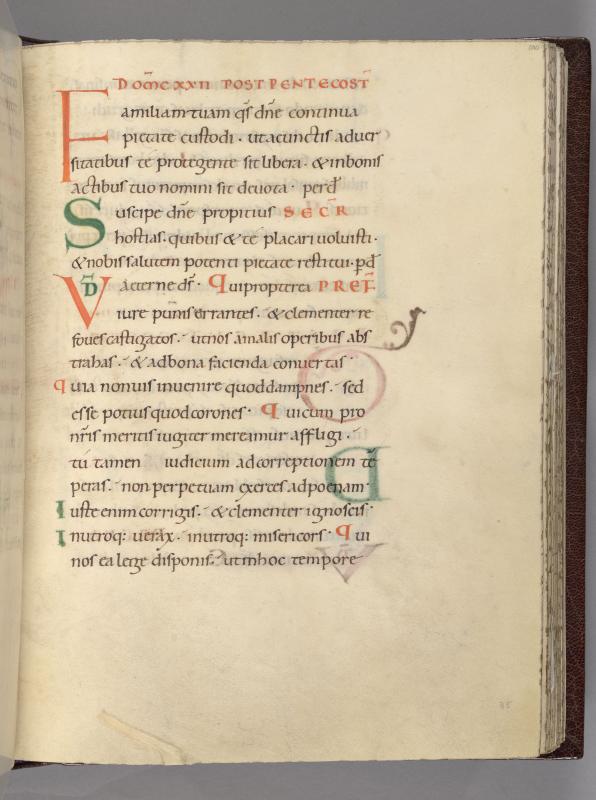 DOM̅C XXII POST PENTECOST̅
Familiam tuam q̅s dn̅e continua
pietate custodi · ut a cunctis aduer
sitatibus te protegente sit libera · & in bonis
actibus tuo nomini sit deuota · per d̅
Suscipe dn̅e propitius SECR̅
hostias · quibus & te placari uoluisti ·
& nobis salutem potenti pietate restitui · p̲d̅
VD̅ Aeterne ds̅ · Qui propterea PREF̅
iure punis errantes · & clementer re
foues castigatos · ut nos a malis operibus abs
trahas · & ad bona facienda conuertas ·
Quia non uis inuenire quod dampnes · sed
esse potius quod corones · Qui cum pro
nr̅is meritis iugiter mereamur affligi ·
tu tamen iudicium ad correptionem te̅
peras · non perpetuam exerces ad poenam ·
Iuste enim corrigis · & clementer ignoscis ·
In utroq: uerax · in utroq: misericors · Qui
nos ea lege disponis · ut in hoc tempore